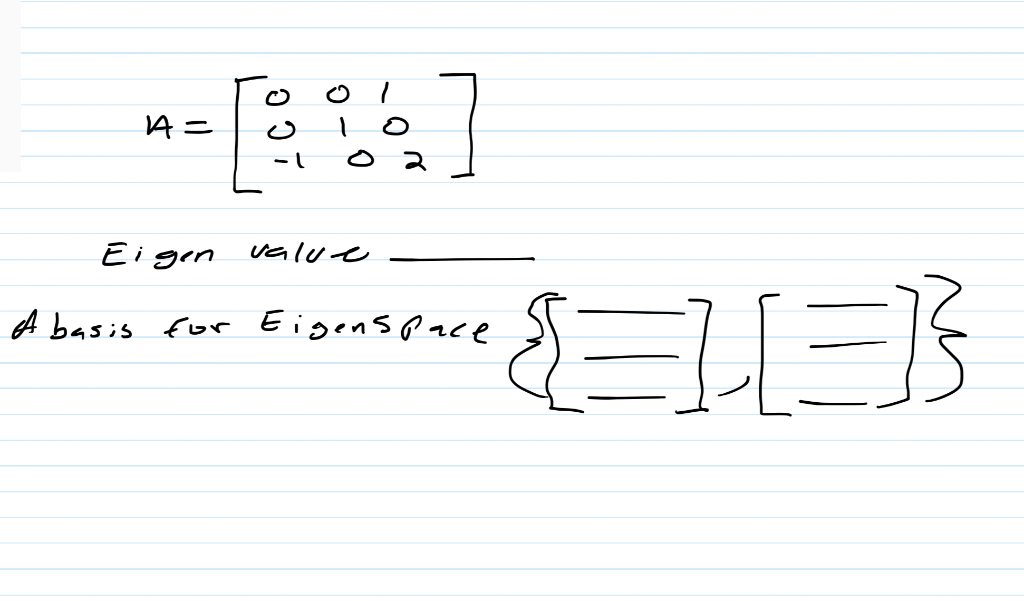 0 0 1
A = 0 1 0
-1 0 2
Eigen value
A basis for Eigenspace { [ ] , [ ] }